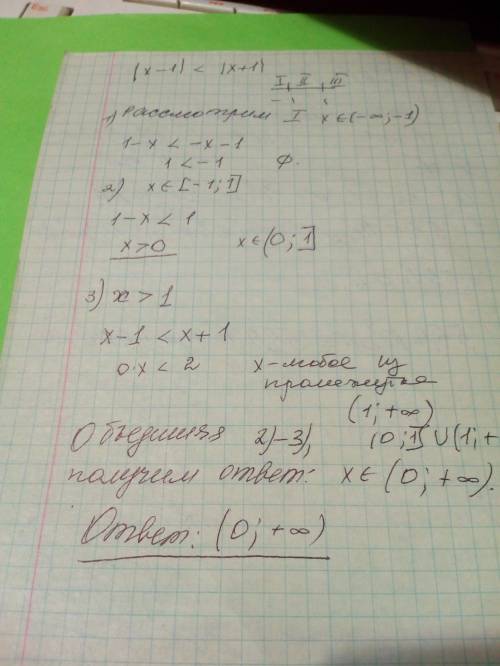 |x-1| < |x+1|
I II III
1) Рассмотрим I x∈(-∞; -1)
1-x < -x-1
1 < -1 ∅.
2) x∈[-1; 1]
1-x < 1
x>0 x∈(0; 1]
3) x > 1
x-1 < x+1
0·x < 2 x-любое из
промежутка
(1; +∞)
Объединяя 2)-3), (0; 1] ∪ (1; +
получим ответ: x∈(0; +∞).
Ответ: (0; +∞)